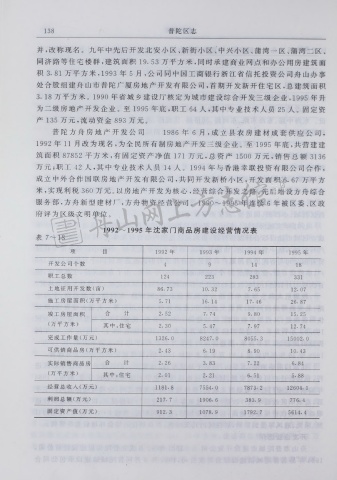 138 普陀区志
并,改称现名。九年中先后开发北安小区,新街小区、中兴小区、蒲湾一区、蒲湾二区、
同济路等住宅楼群,建筑面积 19.53 万平方米,同时承建商业网点和办公用房建筑面
积 3.81 万平方米,1993 年 5 月,公司同中国工商银行浙江省信托投资公司舟山办事
处合股组建舟山市普陀广厦房地产开发有限公司,首期开发新开住宅区,总建筑面积
3.18 万平方米。1990 年省城乡建设厅核定为城市建设综合开发三级企业,1995 年升
为二级房地产开发企业。至 1995 年底,职工 64 人,其中专业技术人员 25 人。固定资
产 135 万元,流动资金 893 万元。
普陀方舟房地产开发公司 1986 年 6 月,成立县农房建材成套供应公司,
1992 年 11 月改为现名,为全民所有制房地产开发三级企业。至 1995 年底,共营建建
筑面积 87852 平方米,有固定资产净值 171 万元,总资产 1500 万元,销售总额 3136
万元,职工 42 人,其中专业技术人员 34 人。1994 年与香港幸联投资有限公司合作,
成立中外合作国联房地产开发有限公司,共同开发新桥小区,开发面积
万平方
米,实现利税 360 万元。以房地产开发为核心,经营综合开发业务,先后增设方舟综合
服务部、方舟新型建材厂、方舟物资经营公司。
年连续 6 年被区委、区政
府评为区级文明单位。
1992—1995 年沈家门商品房建设经营情况表
表 7—
项 目 1992 年 1993 年 1994 年 1995 年
开发公司个数 4 9 14 18
职工总数 124 223 283 331
土地征用开发数(亩) 86.73 10.32 7.65 12.07
施工房屋面积(万平方米) 5.71 16.14 17.46 26.87
竣工房屋面积
(万平方米) 合 计 2.52 7.74 9.80 15.25
其中,住宅 2.30 5.47 7.97 12.74
完成工作量(万元) 1326.0 8247.0 8055.3 15005.0
可供销商品房(万平方米) 2.43 6.19 8.90 10.43
实际销售商品房
(万平方米) 合 计 2.26 3.83 7.22 6.81
其中,住宅 2.05 2.21 6.75 5.88
经营总收入(万元) 1185.8 7554.0 7873.2
利润总额(万元) 217.7 1906.6 383.9 376.4
固定资产值(万元) 1078.9 1782.7 5614.4